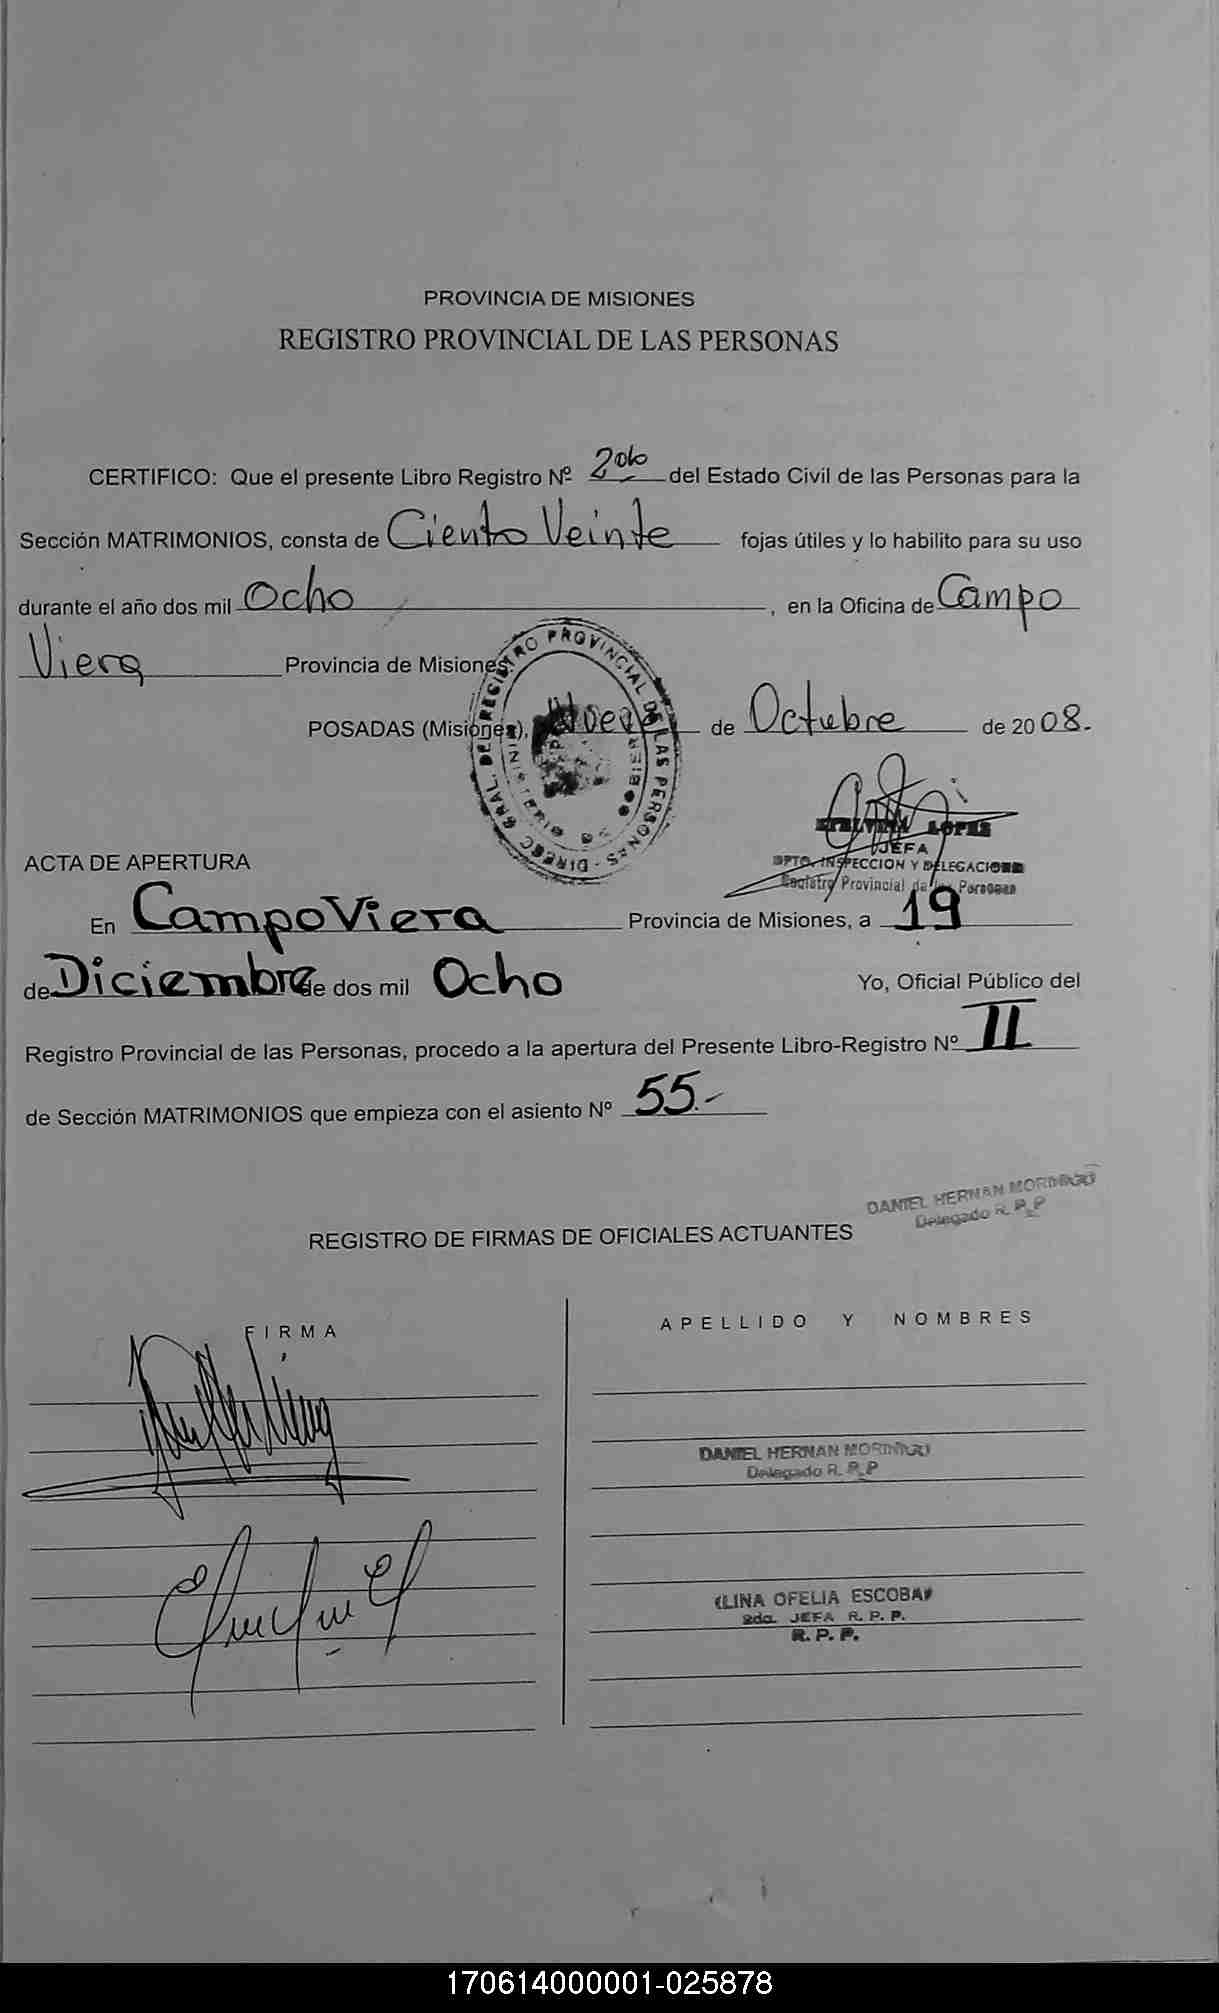 PROVINCIA DE MISIONES
REGISTRO PROVINCIAL DE LAS PERSONAS
CERTIFICO: Que el presente Libro Registro Nº 2do del Estado Civil de las Personas para la
Sección MATRIMONIOS, consta de Ciento Veinte fojas útiles y lo habilito para su uso
durante el año dos mil Ocho, en la Oficina de Campo
Viera Provincia de Misiones.
POSADAS (Misiones), Nueve de Octubre de 2008.-
DIREC. GRAL. DE REGISTRO PROVINCIAL DE LAS PERSONAS
LOPEZ
JEFA
DPTO. INSPECCION Y DELEGACIONES
Registro Provincial de las Personas
ACTA DE APERTURA
En Campo Viera Provincia de Misiones, a 19
de Diciembre de dos mil Ocho Yo, Oficial Público del
Registro Provincial de las Personas, procedo a la apertura del Presente Libro-Registro Nº II
de Sección MATRIMONIOS que empieza con el asiento Nº 55.-
DANIEL HERNAN MORINIGO
Delegado R. P. P
REGISTRO DE FIRMAS DE OFICIALES ACTUANTES
FIRMA
APELLIDO Y NOMBRES
DANIEL HERNAN MORINIGO
Delegado R. P. P
LINA OFELIA ESCOBAR
2da. JEFA R. P. P.
R. P. P.
170614000001-025878